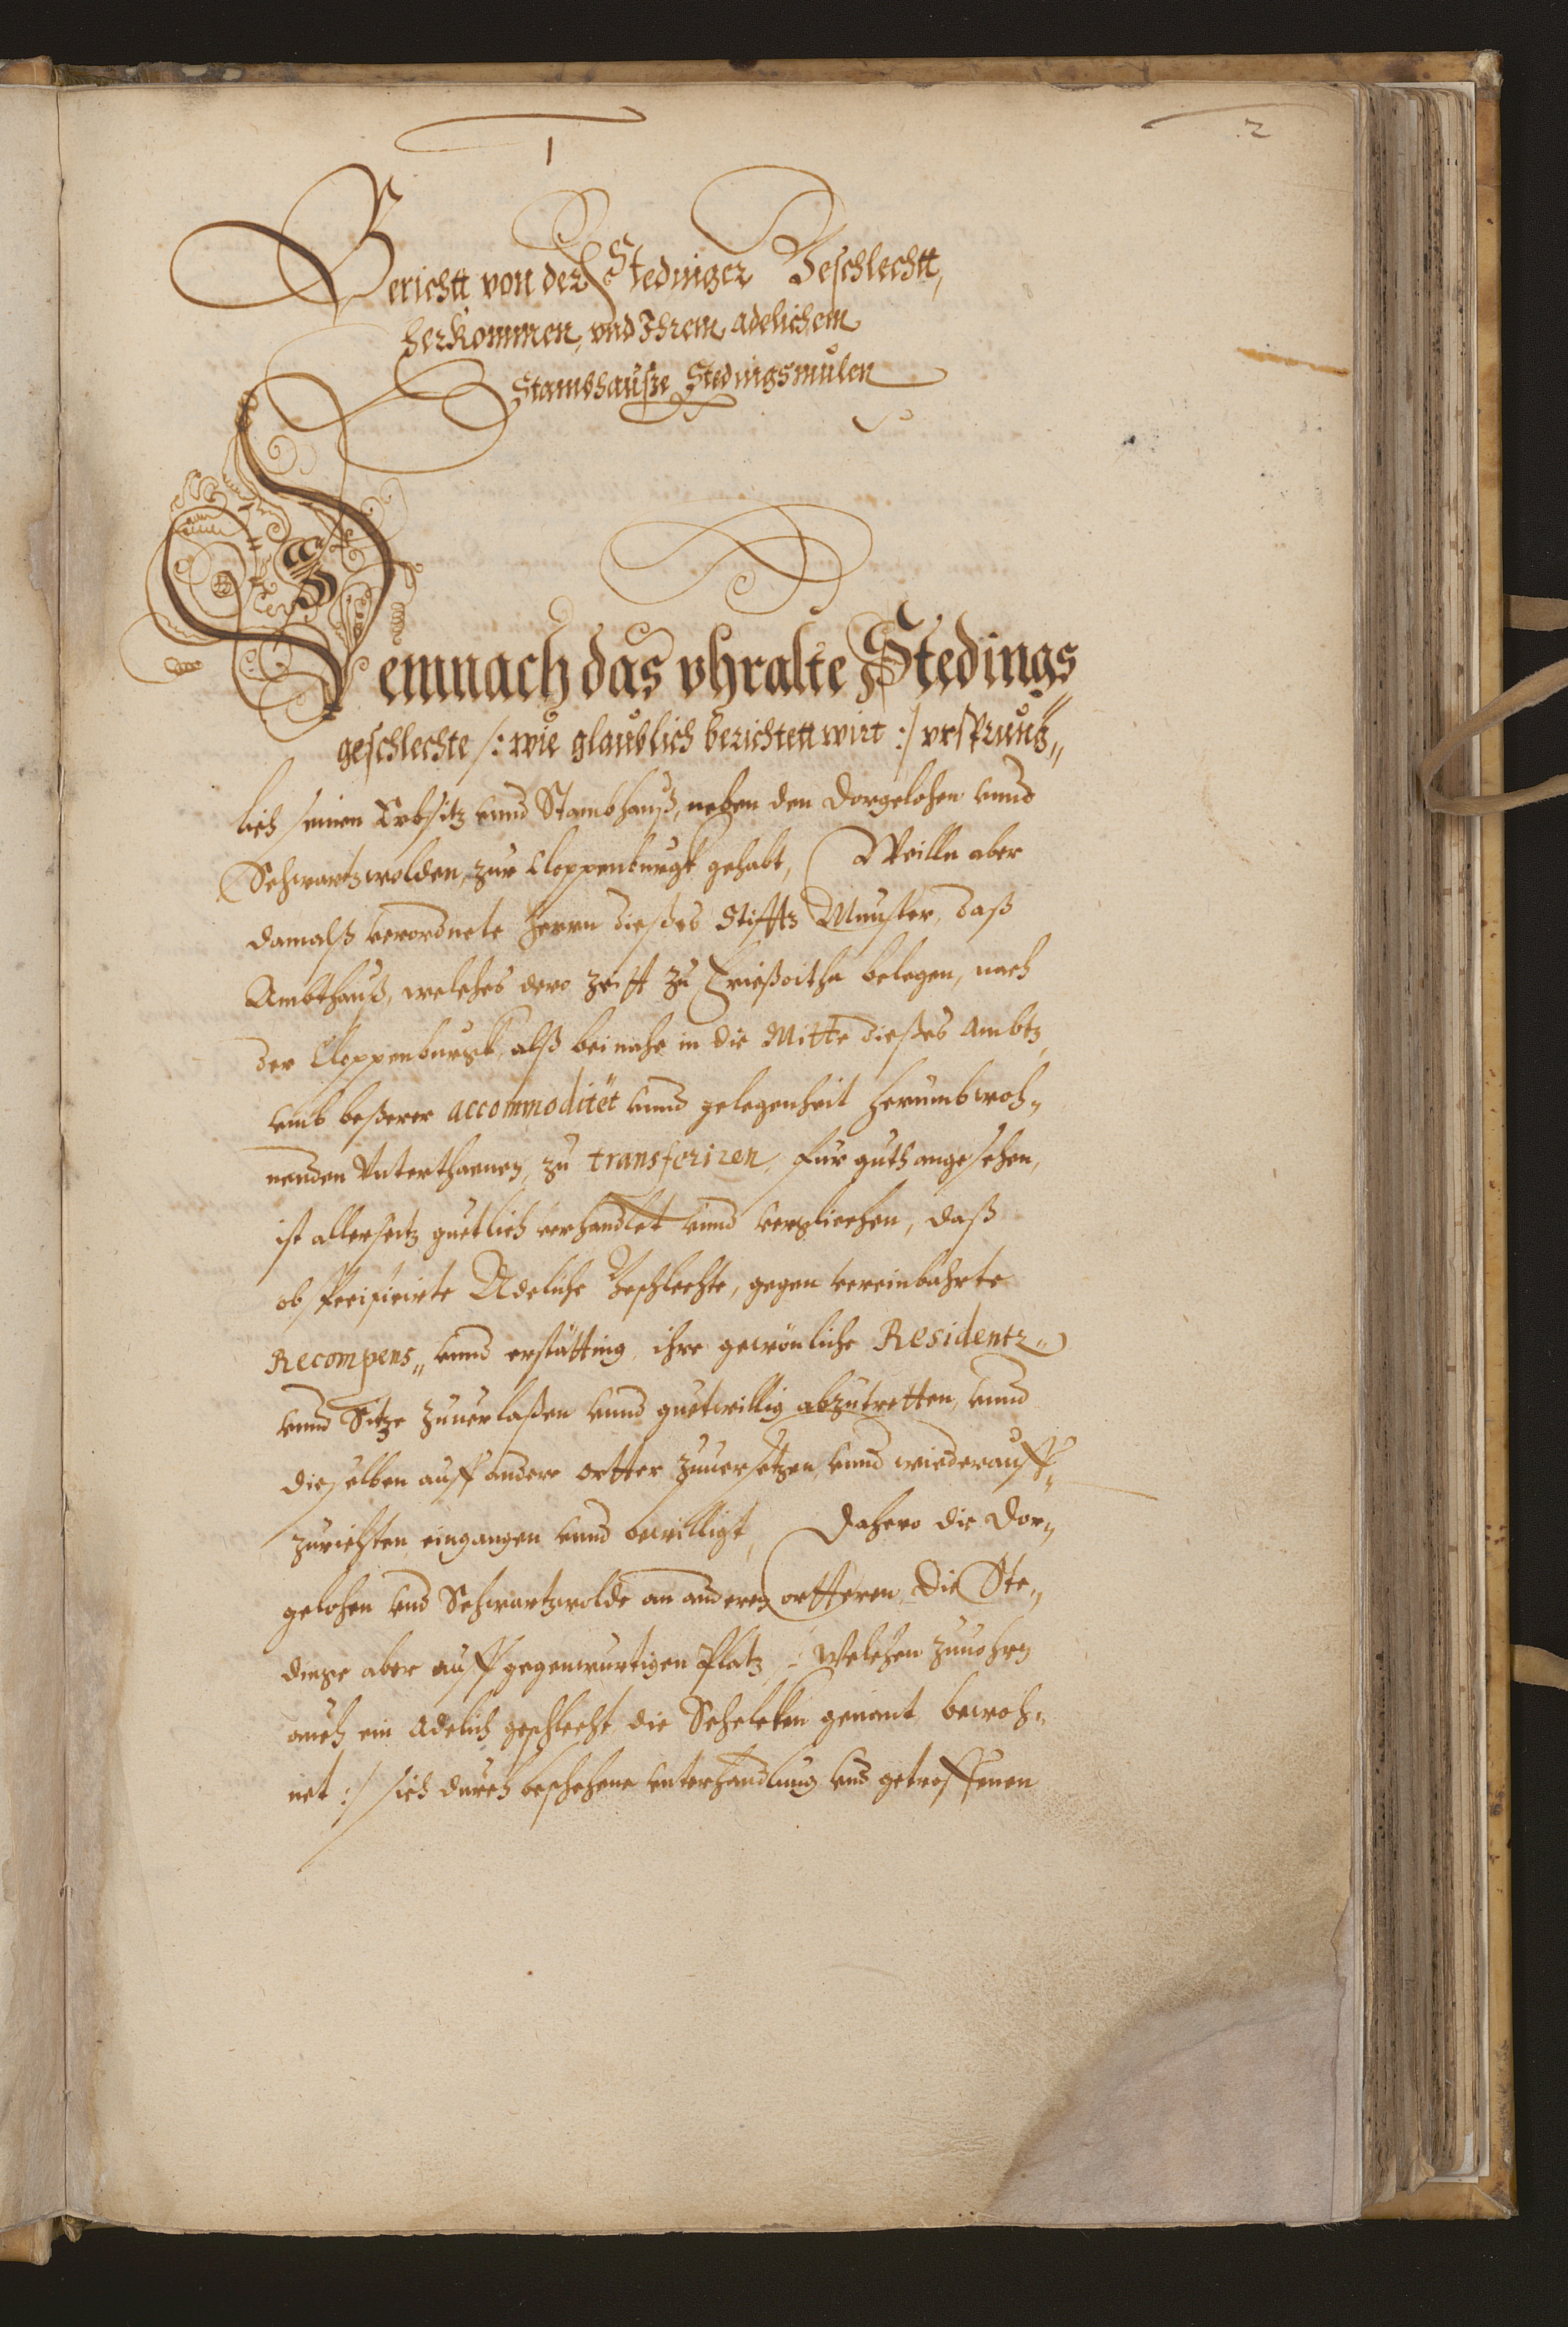 1
2
Berichtt von der Stedinger Geschlechtt,
herkommen, vnd Ihrem adelichem
Stambhauße Stedingsmulen
Demnach das vhralte Stedings
geschlechte /: wie glaublich berichtett wirt :/ vrsprung„
lich seinen Erbsitz vnnd Stambhauß, neben den Dorgelohen vnnd
Schwartzwolden, zur Cloppenburgk gehabt, Weilln aber
damalß verordnete Herrn dießes Stiffts Munster, daß
Ambthauß, welches dero zeitt zu Frießoitha belegen, nach
der Cloppenburgk, alß beinahe in die Mitte dießes Ambtz
vmb beßerer accommoditet vnnd gelegenheit herumbwoh„
nenden Vnterthanen, zu transferiren, für guth angesehen,
ist allerseitz guetlich verhandlet vnnd verglichen, daß
obspecificirte Adeliche Geschlechte, gegen vereinbahrte
Recompens„ vnnd erstätting, ihre gewönliche Residentz„
vnnd Sitze zuuerlaßen vnnd guetwillig abzutretten, vnnd
dieselben auff andere ortter zuuersetzen, vnnd wiederauff„
zurichten, eingangen vnnd bewilligt, Dahero die Dor„
gelohen vnd Schwartzwolde an anderen ortteren, die Ste„
dinge aber auff gegenwurtigen Platz /: welchen zuuohrn
auch ein Adelich geschlecht, die Scheleken genant, bewoh„
net :/ sich durch beschehene vnterhandlung vnd getroffenen